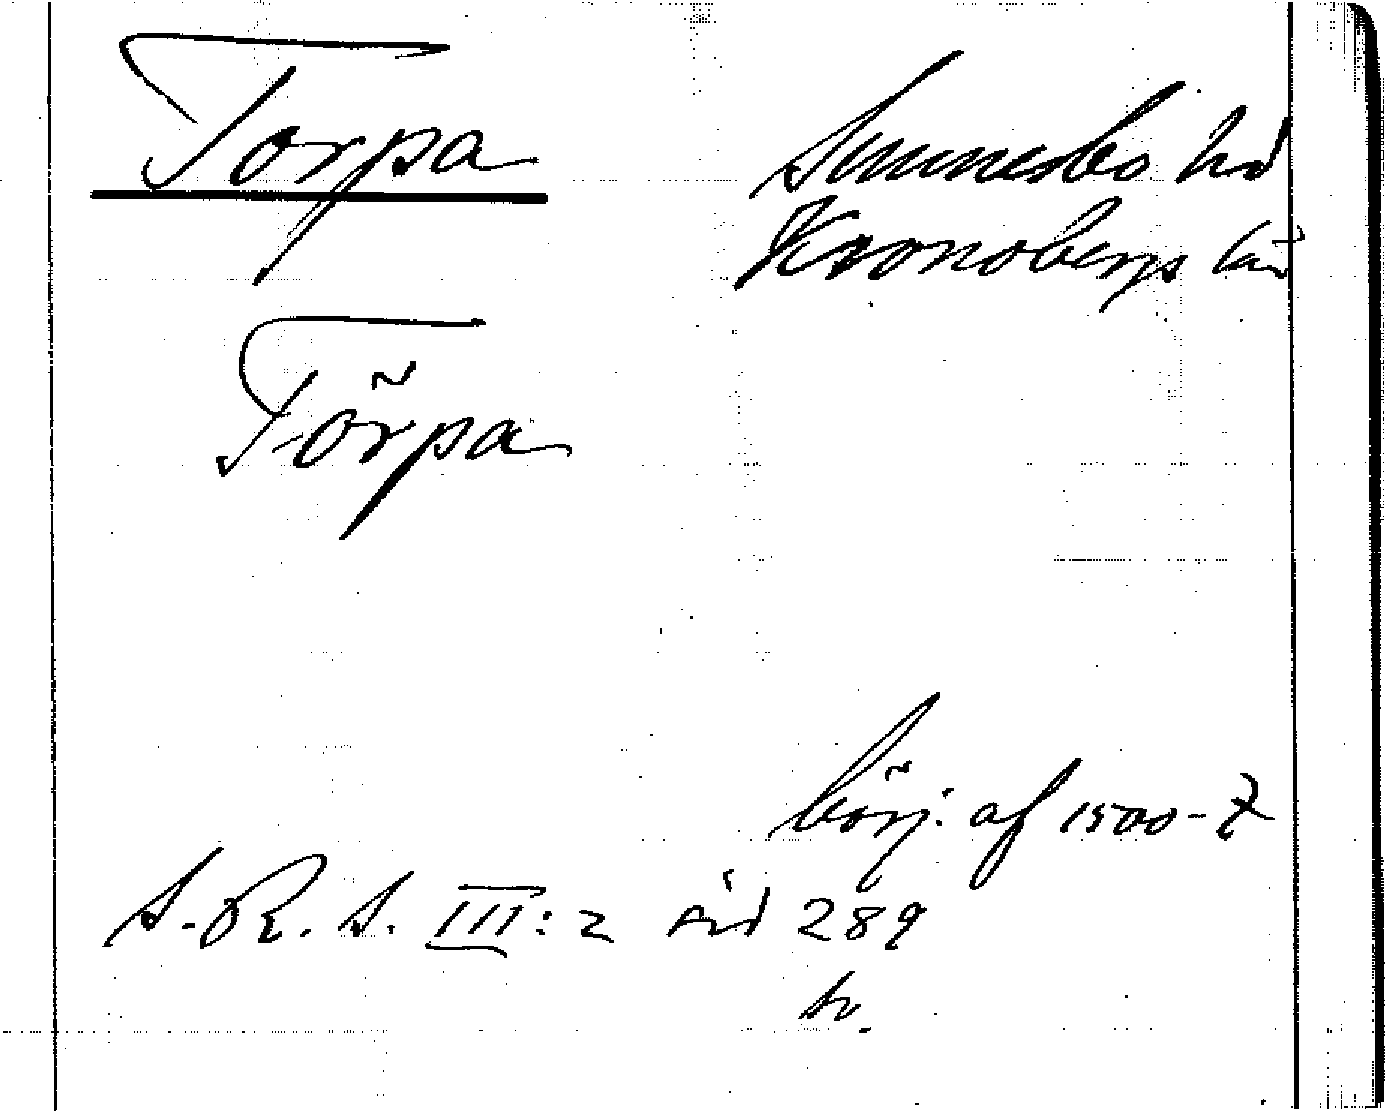 Torpa
Sunnerbo hd
Kronobergs län
Törpa
börj. af 1500-t
S. R. S. III:2 sid 289
tr.